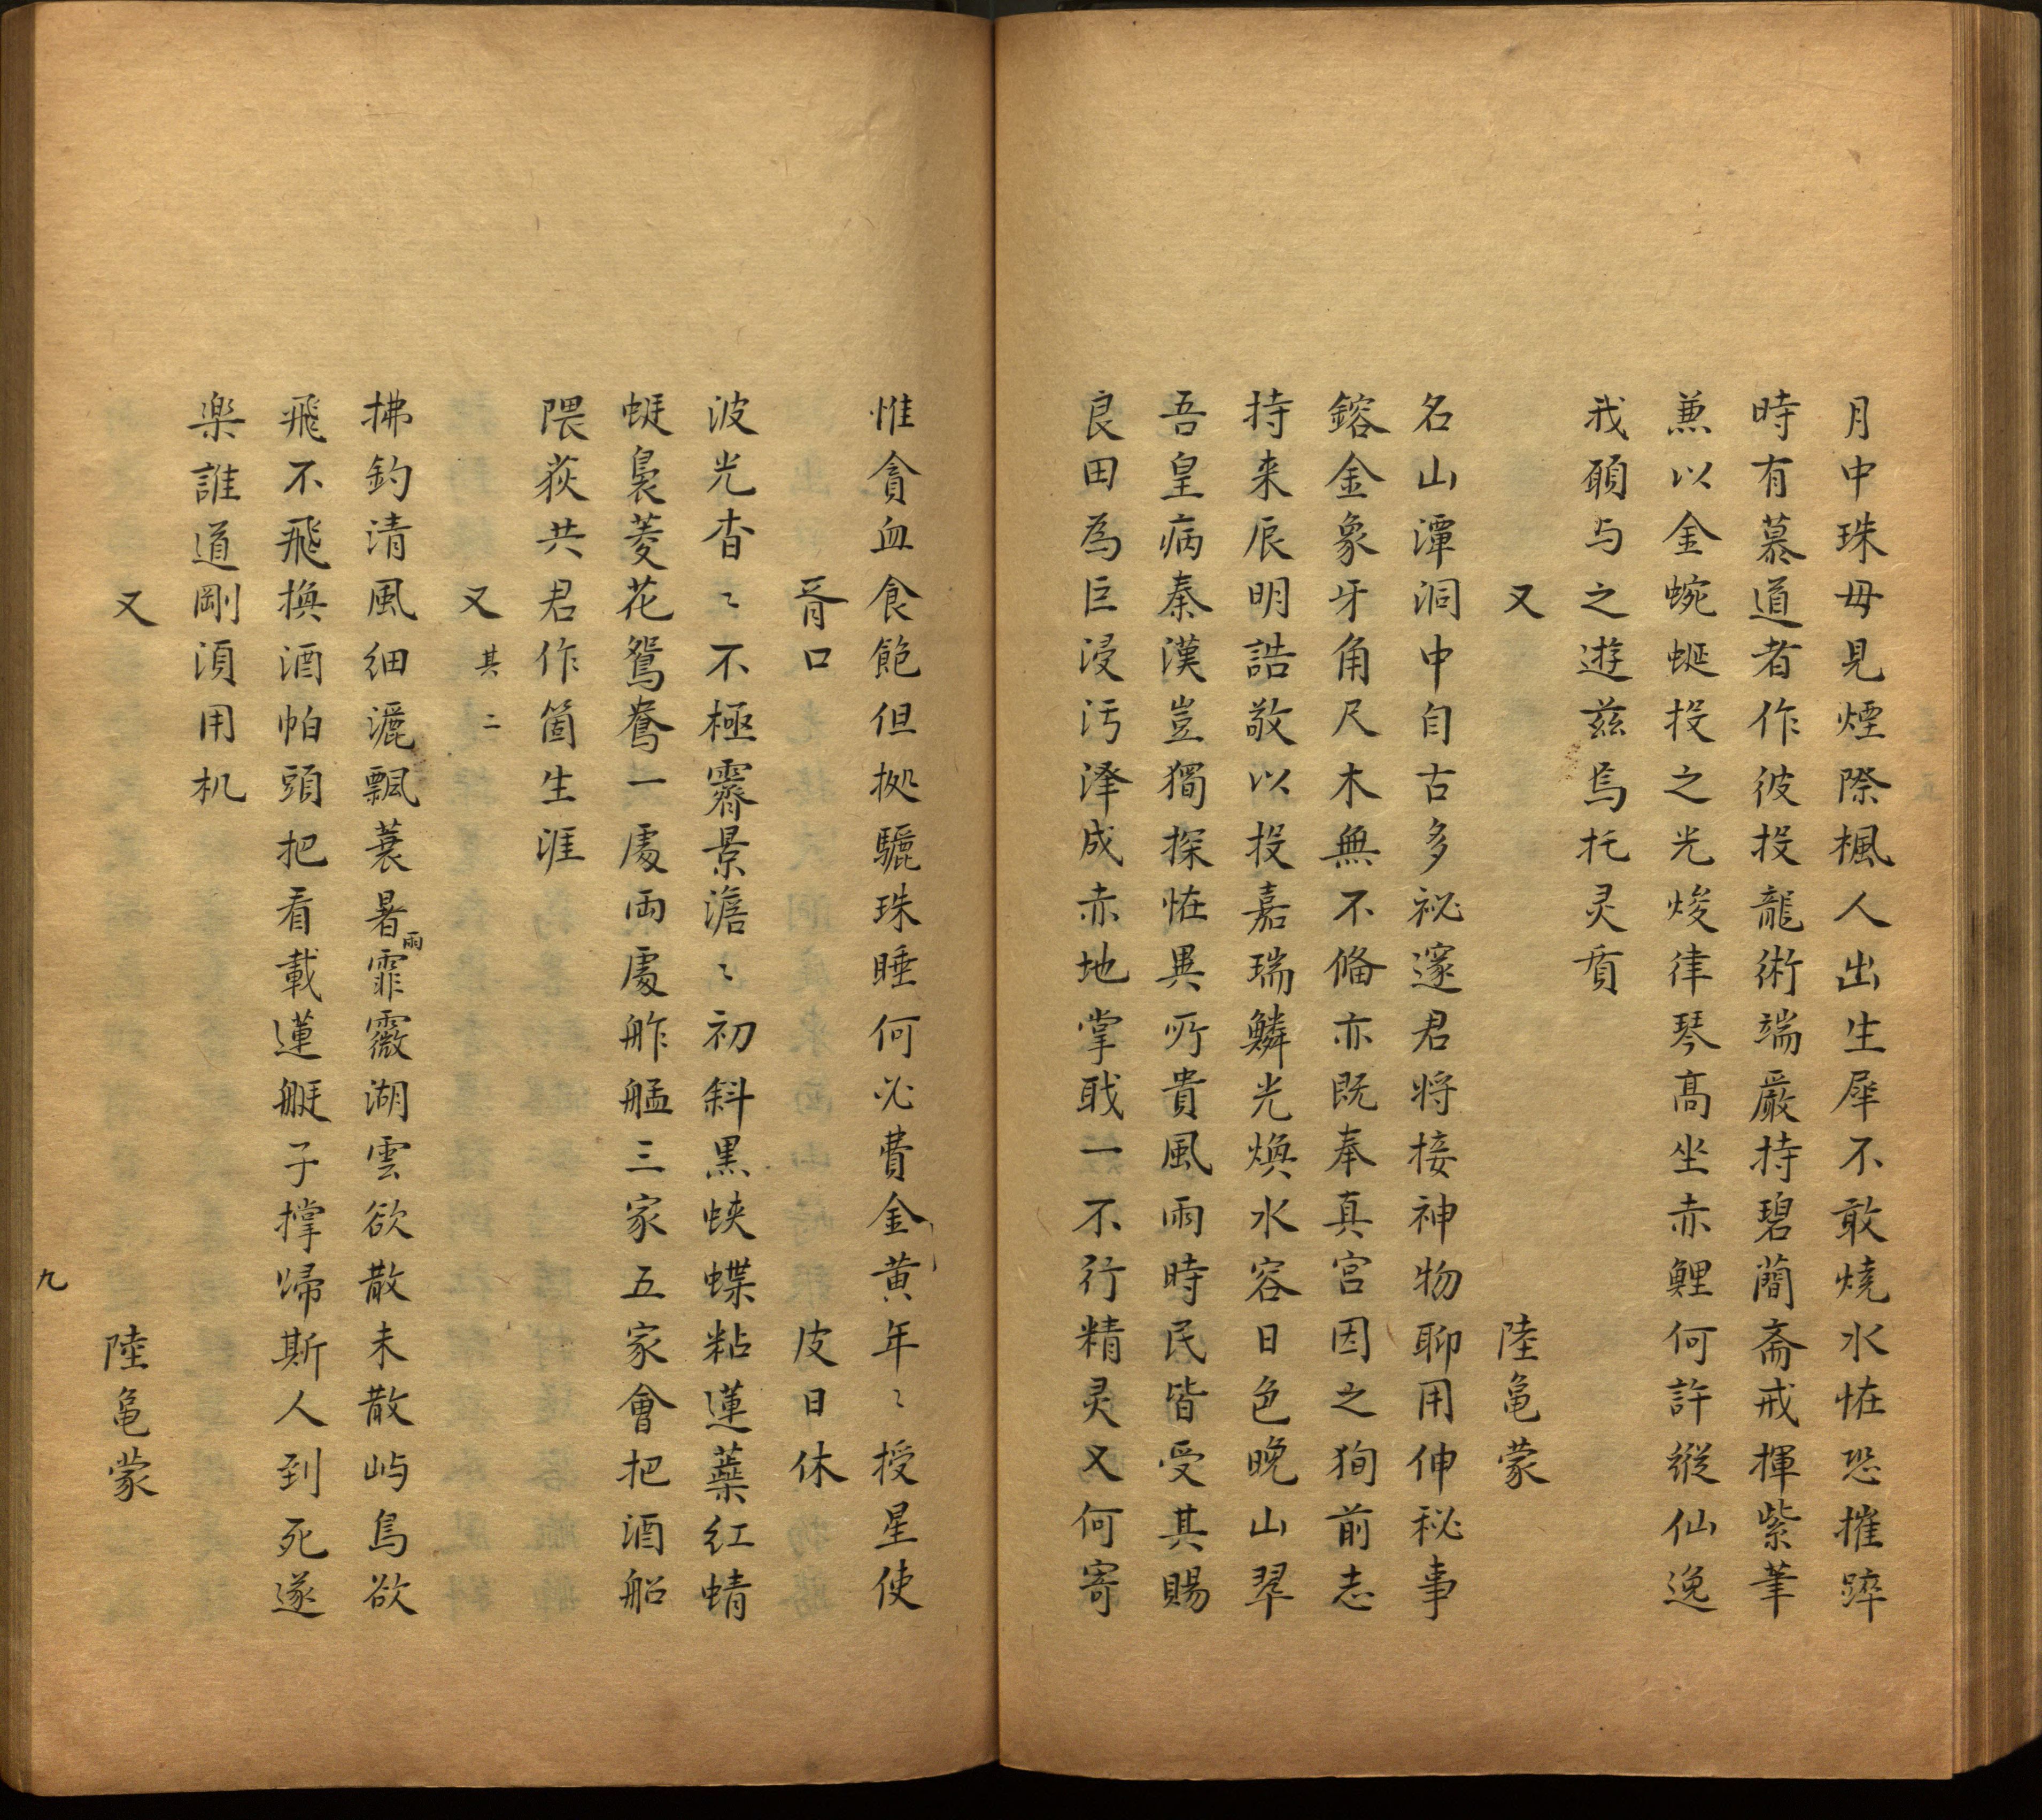 月中珠母見煙際楓人出生犀不敢燒水怪恐摧踤
時有慕道者作彼投龍術端嚴持碧蕳斎戒揮紫筆
兼以金蜿蜒投之光焌律琴高坐赤鯉何許縱仙逸
我頋与之遊兹焉托灵質
又　陸亀蒙
名山潭洞中自古多祕邃君将接神物聊用伸秘事
鎔金象牙角尺木無不偹亦既奉真宮因之狥前志
持来辰明誥敬以投嘉瑞鱗光煥水容日色晚山翠
吾皇病秦漢豈獨探怪異所貴風雨時民皆受其賜
良田為巨浸污澤成赤地掌戢一不行精灵又何寄
惟貪血食飽但拠驪珠睡何必費金黄年〻授星使
胥口　皮日休
波光杳〻不極霽景澹〻初斜黒蛺蝶粘蓮蘂红蜻
蜓裊菱花鴛鴦一處両處舴艋三家五家會把酒船
隈荻共君作箇生涯
又 其二
拂釣清風細灑飄蓑暑雨霏霺湖雲欲散未散屿鳥欲
飛不飛換酒帕頭把看載蓮艇子撑帰斯人到死遂
楽誰道剛湏用机
又　陸亀蒙
九